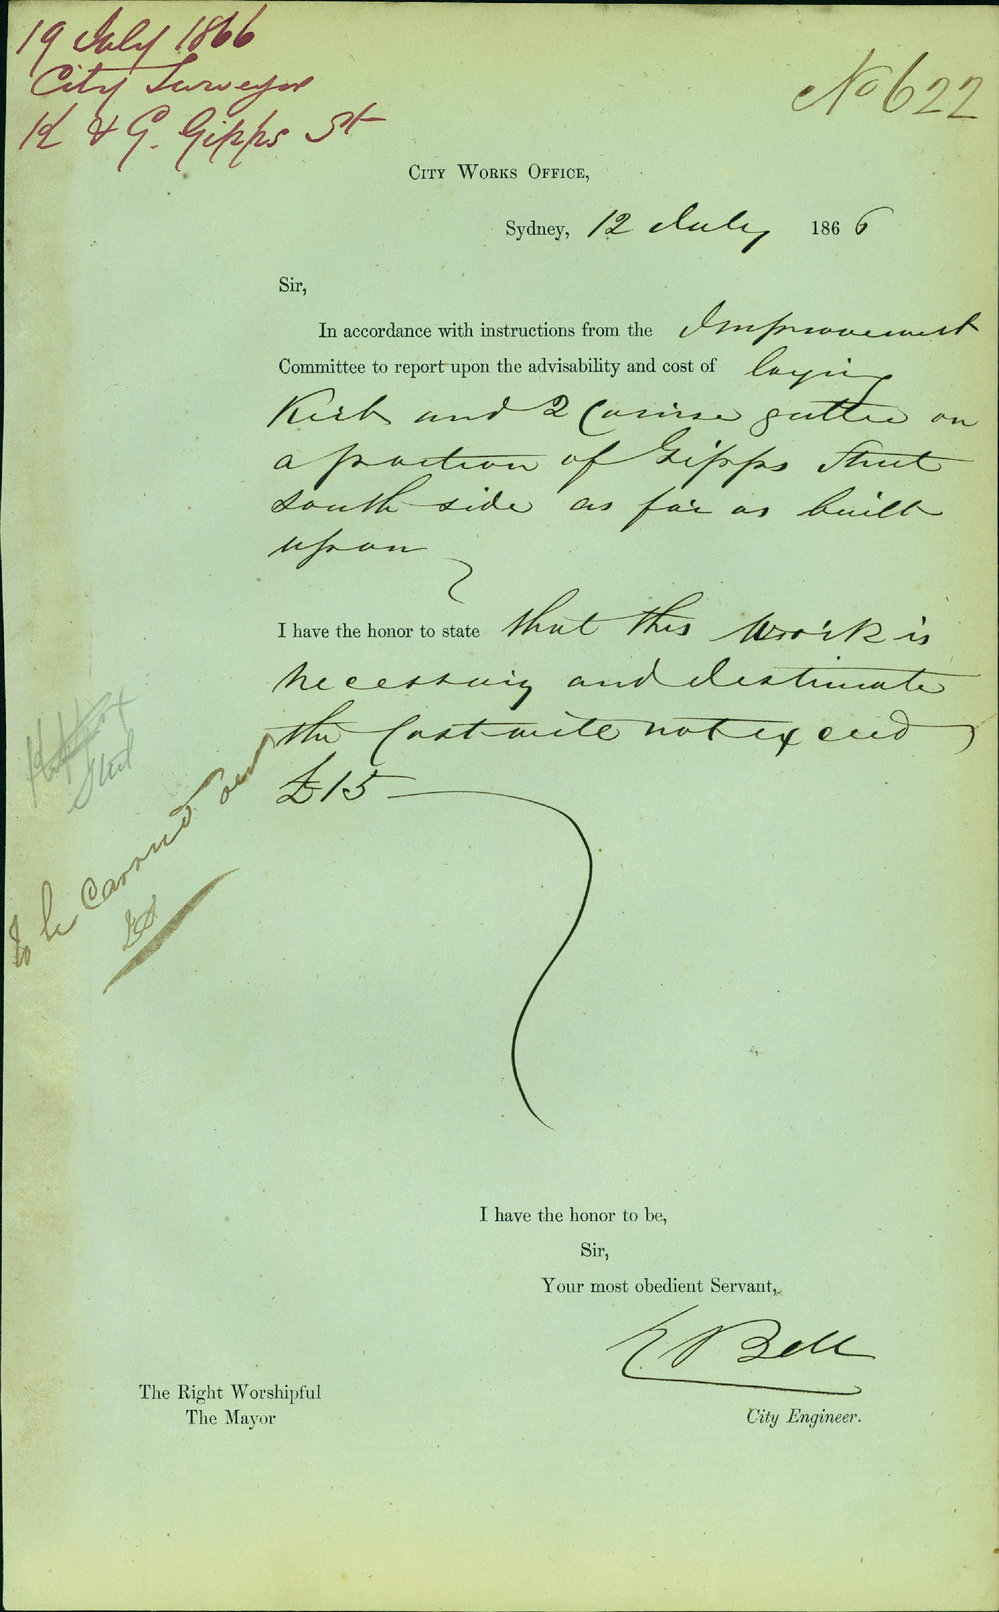 19 July 1866
City Surveyor
K & G. Gipps St
No 622
City Works Office,
Sydney, 12 July 1866
Sir,
In accordance with instructions from the Improvement
Committee to report upon the advisability and cost of laying
Kerb and 2 Course gutter on
a portion of Gipps Street
south side as far as built
upon
I have the honor to state that this Work is
necessary and I estimate
the Cost will not exceed
£15
To be Carried out
I have the honor to be,
Sir,
Your most obedient Servant,
E Bell
City Engineer.
The Right Worshipful
The Mayor